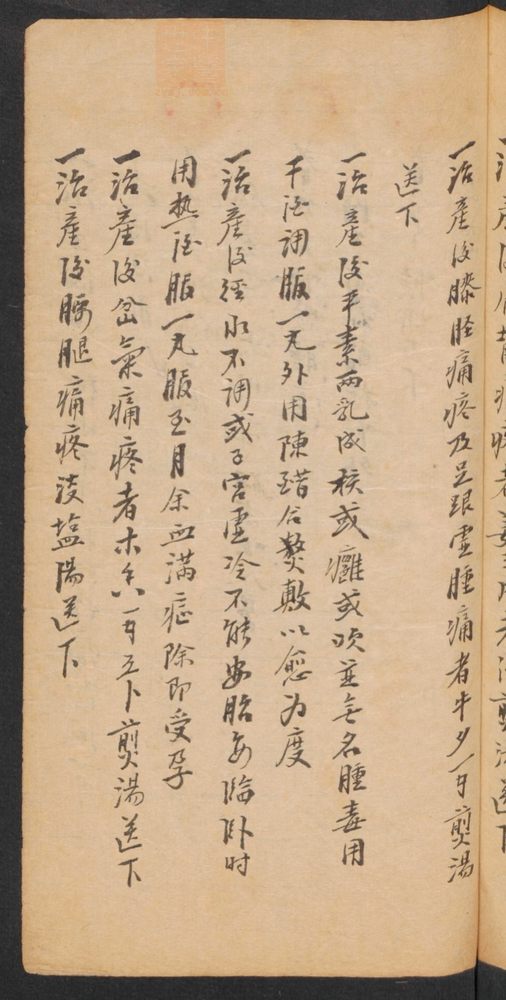 一治產後膝胫痛疼及足跟虛腫痛者牛夕一刄煎湯
送下
一治產後平素兩乳成核或癰或吹並無名腫毒用
干酒調服一丸外用陳醋合熬敷以愈为度
一治產後經水不調或子宮虛冷不能安胎每臨卧时
用热酒服一丸服至月余血滿症除即受孕
一治產後岔氣痛疼者木香一刄五卜煎湯送下
一治產後腰腿痛疼淡塩陽送下